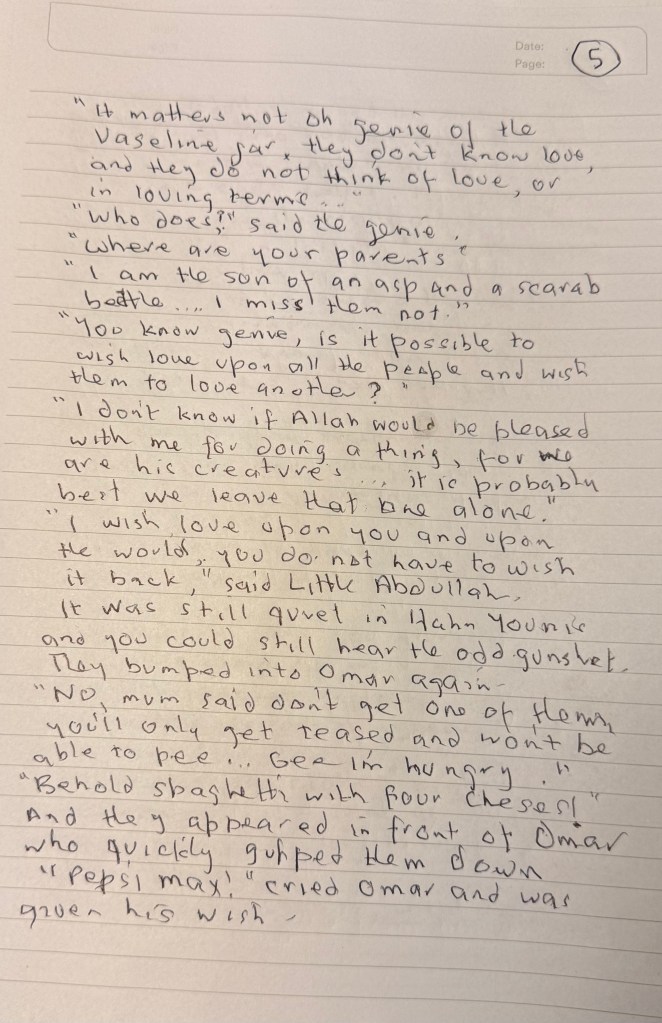 Date:
Page:
5
"It matters not oh genie of the
Vaseline jar, they don't know love,
and they do not think of love, or
in loving terms..."
"Who does?!" said the genie.
"Where are your parents"
"I am the son of an asp and a scarab
beetle.... I miss them not."
"You know genie, is it possible to
wish love upon all the people and wish
them to love another?"
"I don't know if Allah would be pleased
with me for doing a thing, for we
are his creatures... it is probably
best we leave that one alone."
"I wish love upon you and upon
the world, you do not have to wish
it back," said Little Abdullah.
It was still quiet in Hahn Younis
and you could still hear the odd gunshot.
They bumped into Omar again-
"No, mum said don't get one of them,
you'll only get teased and won't be
able to pee... Gee I'm hungry."
"Behold spaghetti with four cheses!"
And they appeared in front of Omar
who quickly gulped them down
"Pepsi max!" cried Omar and was
given his wish -